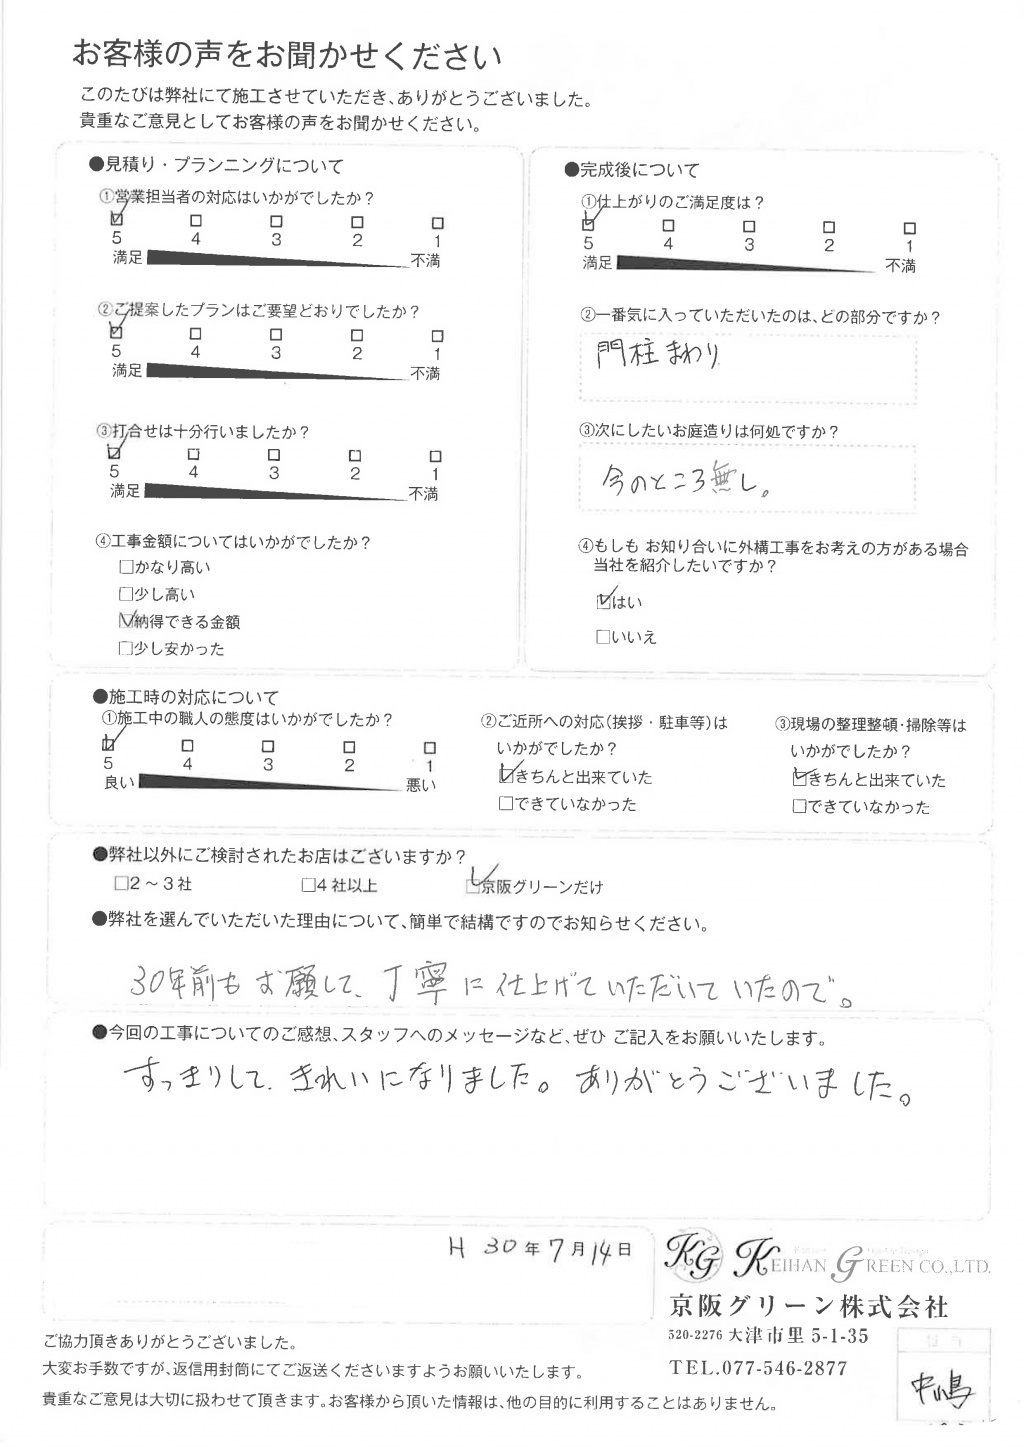 お客様の声をお聞かせください
このたびは弊社にて施工させていただき、ありがとうございました。
貴重なご意見としてお客様の声をお聞かせください。
●見積り・プランニングについて
①営業担当者の対応はいかがでしたか？
5 4 3 2 1
満足 不満
②ご提案したプランはご要望どおりでしたか？
5 4 3 2 1
満足 不満
③打合せは十分行いましたか？
5 4 3 2 1
満足 不満
④工事金額についてはいかがでしたか？
□かなり高い
□少し高い
☑納得できる金額
□少し安かった
●完成後について
①仕上がりのご満足度は？
5 4 3 2 1
満足 不満
②一番気に入っていただいたのは、どの部分ですか？
門柱まわり
③次にしたいお庭造りは何処ですか？
今のところ無し。
④もしも お知り合いに外構工事をお考えの方がある場合
当社を紹介したいですか？
☑はい
□いいえ
●施工時の対応について
①施工中の職人の態度はいかがでしたか？
5 4 3 2 1
良い 悪い
②ご近所への対応（挨拶・駐車等）は
いかがでしたか？
☑きちんと出来ていた
□できていなかった
③現場の整理整頓・掃除等は
いかがでしたか？
☑きちんと出来ていた
□できていなかった
●弊社以外にご検討されたお店はございますか？
□2～3社 □4社以上 ☑京阪グリーンだけ
●弊社を選んでいただいた理由について、簡単で結構ですのでお知らせください。
30年前もお願して、丁寧に仕上げていただいていたので。
●今回の工事についてのご感想、スタッフへのメッセージなど、ぜひ ご記入をお願いいたします。
すっきりして、きれいになりました。ありがとうございました。
H 30年7月14日
KG KEIHAN GREEN CO.,LTD.
京阪グリーン株式会社
520-2276 大津市里5-1-35
TEL.077-546-2877
中嶋
ご協力頂きありがとうございました。
大変お手数ですが、返信用封筒にてご返送くださいますようお願いいたします。
貴重なご意見は大切に扱わせて頂きます。お客様から頂いた情報は、他の目的に利用することはありません。